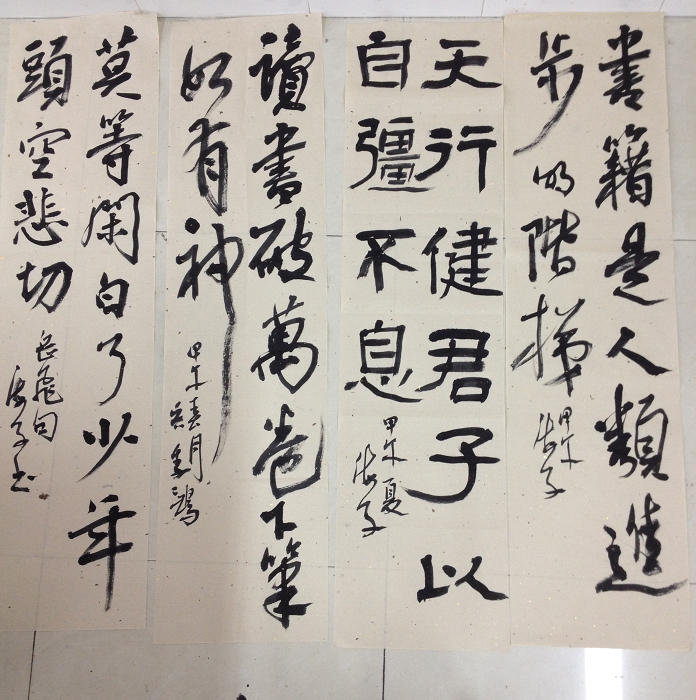 書籍是人類進
步的階梯
甲午
天行健君子以
自彊不息
甲午夏
讀書破萬卷下筆
如有神
甲午春月
莫等閑白了少年
頭空悲切
岳飛句